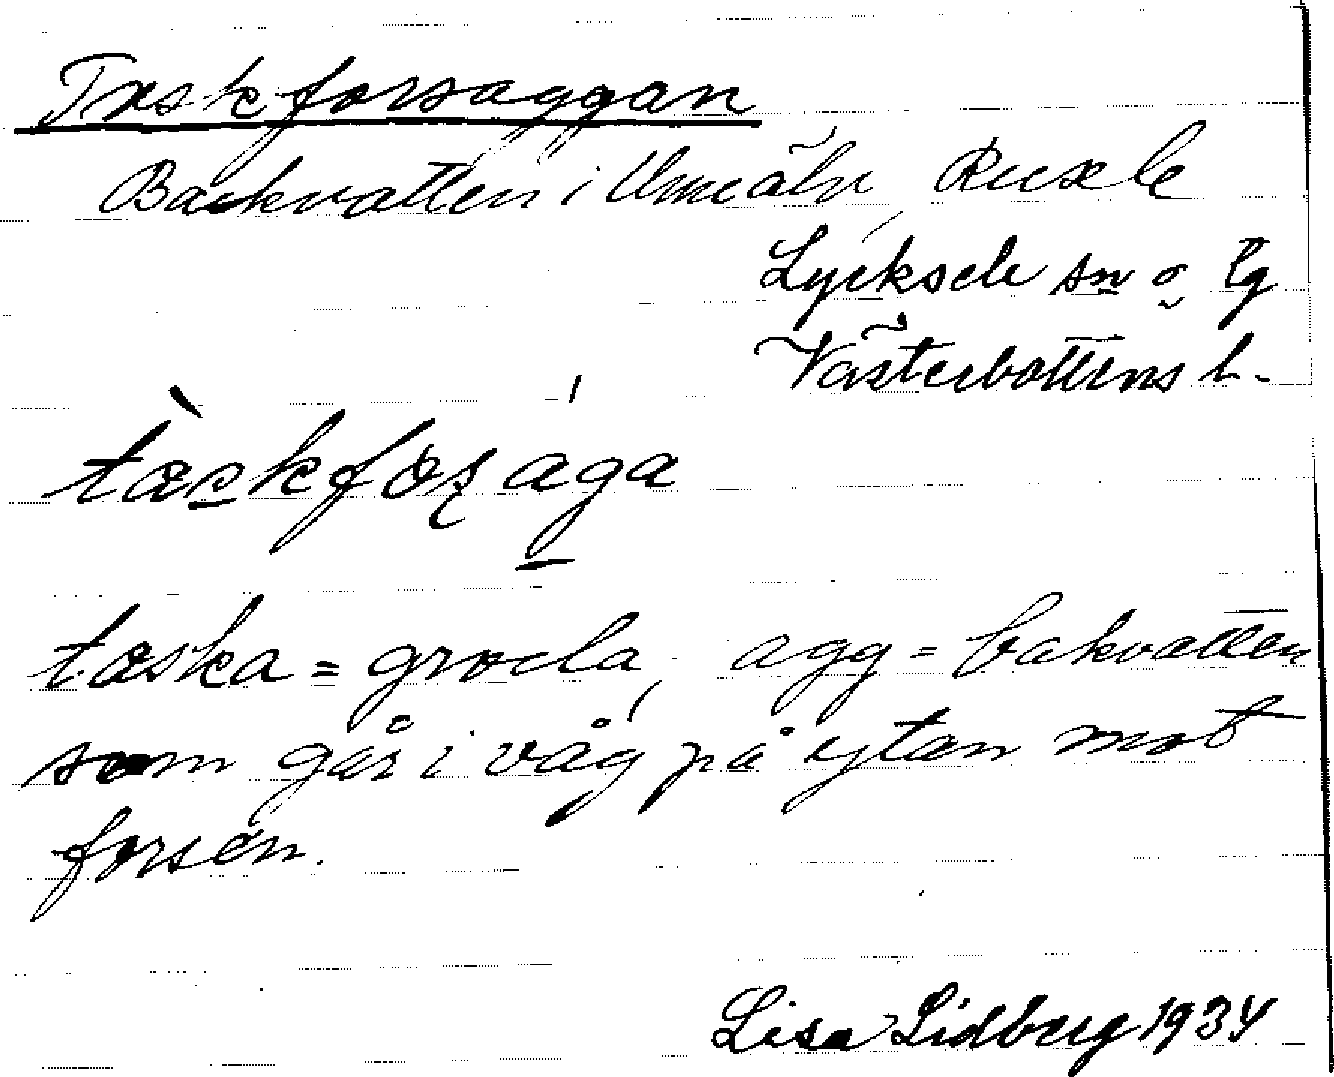 Tæskforsaggan
Backvatten i Umeälv, Ruxle
Lycksele sn o. lg
Västerbottens l.
tæska = groda, agg = bakvatten
som går i väg på ytan mot
forsen.
Lisa Lidberg 1934